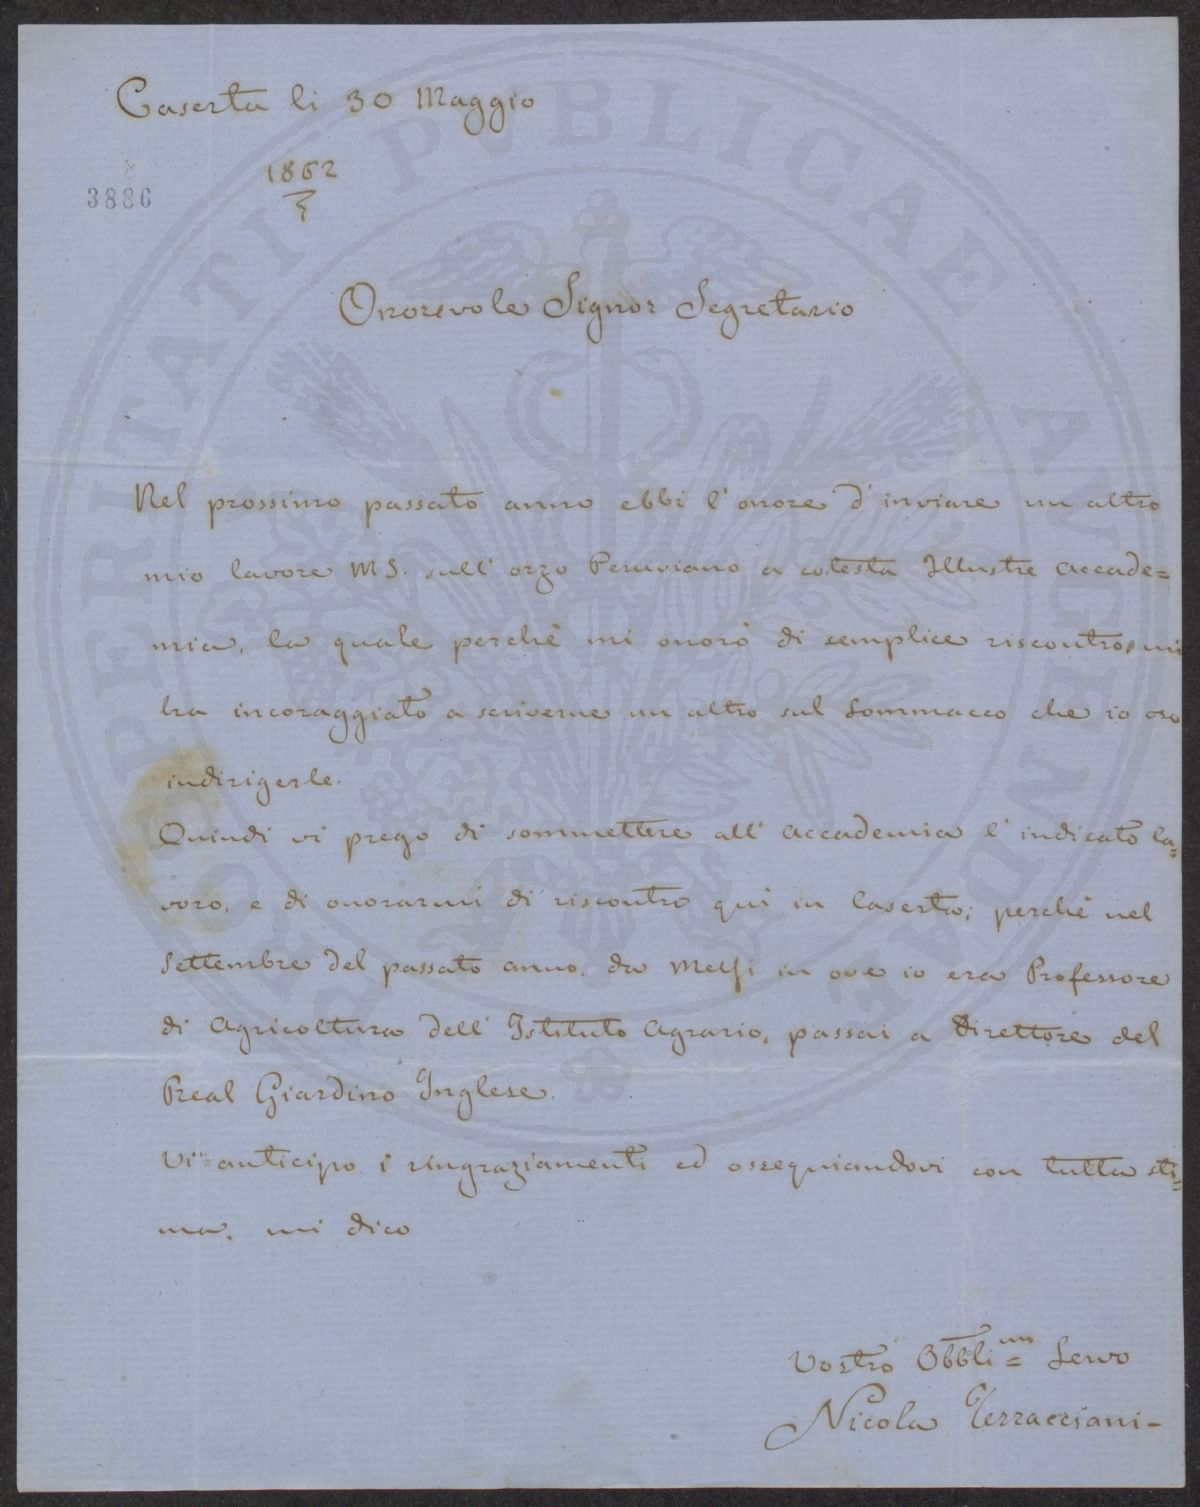 Caserta li 30 Maggio
1862
3886
Onorevole Signor Segretario
Nel prossimo passato anno ebbi l'onore d'inviare un altro
mio lavoro MS. sull'orzo Peruviano a cotesta Illustre Accade=
mia, la quale perchè mi onorò di semplice riscontro, mi
ha incoraggiato a scriverne un altro sul Sommacco che io oso
indirigerle.
Quindi vi prego di sommettere all'Accademia l'indicato la=
voro, e di onorarmi di riscontro qui in Caserta; perchè nel
Settembre del passato anno, da Melfi in ove io era Professore
di Agricoltura dell'Istituto Agrario, passai a Direttore del
Real Giardino Inglese.
Vi anticipo i ringraziamenti ed ossequiandovi con tutta sti=
ma, mi dico
Vostro Obbli=mo Servo
Nicola Terracciani-
PROSPERITATI PVBLICAE AVGENDAE